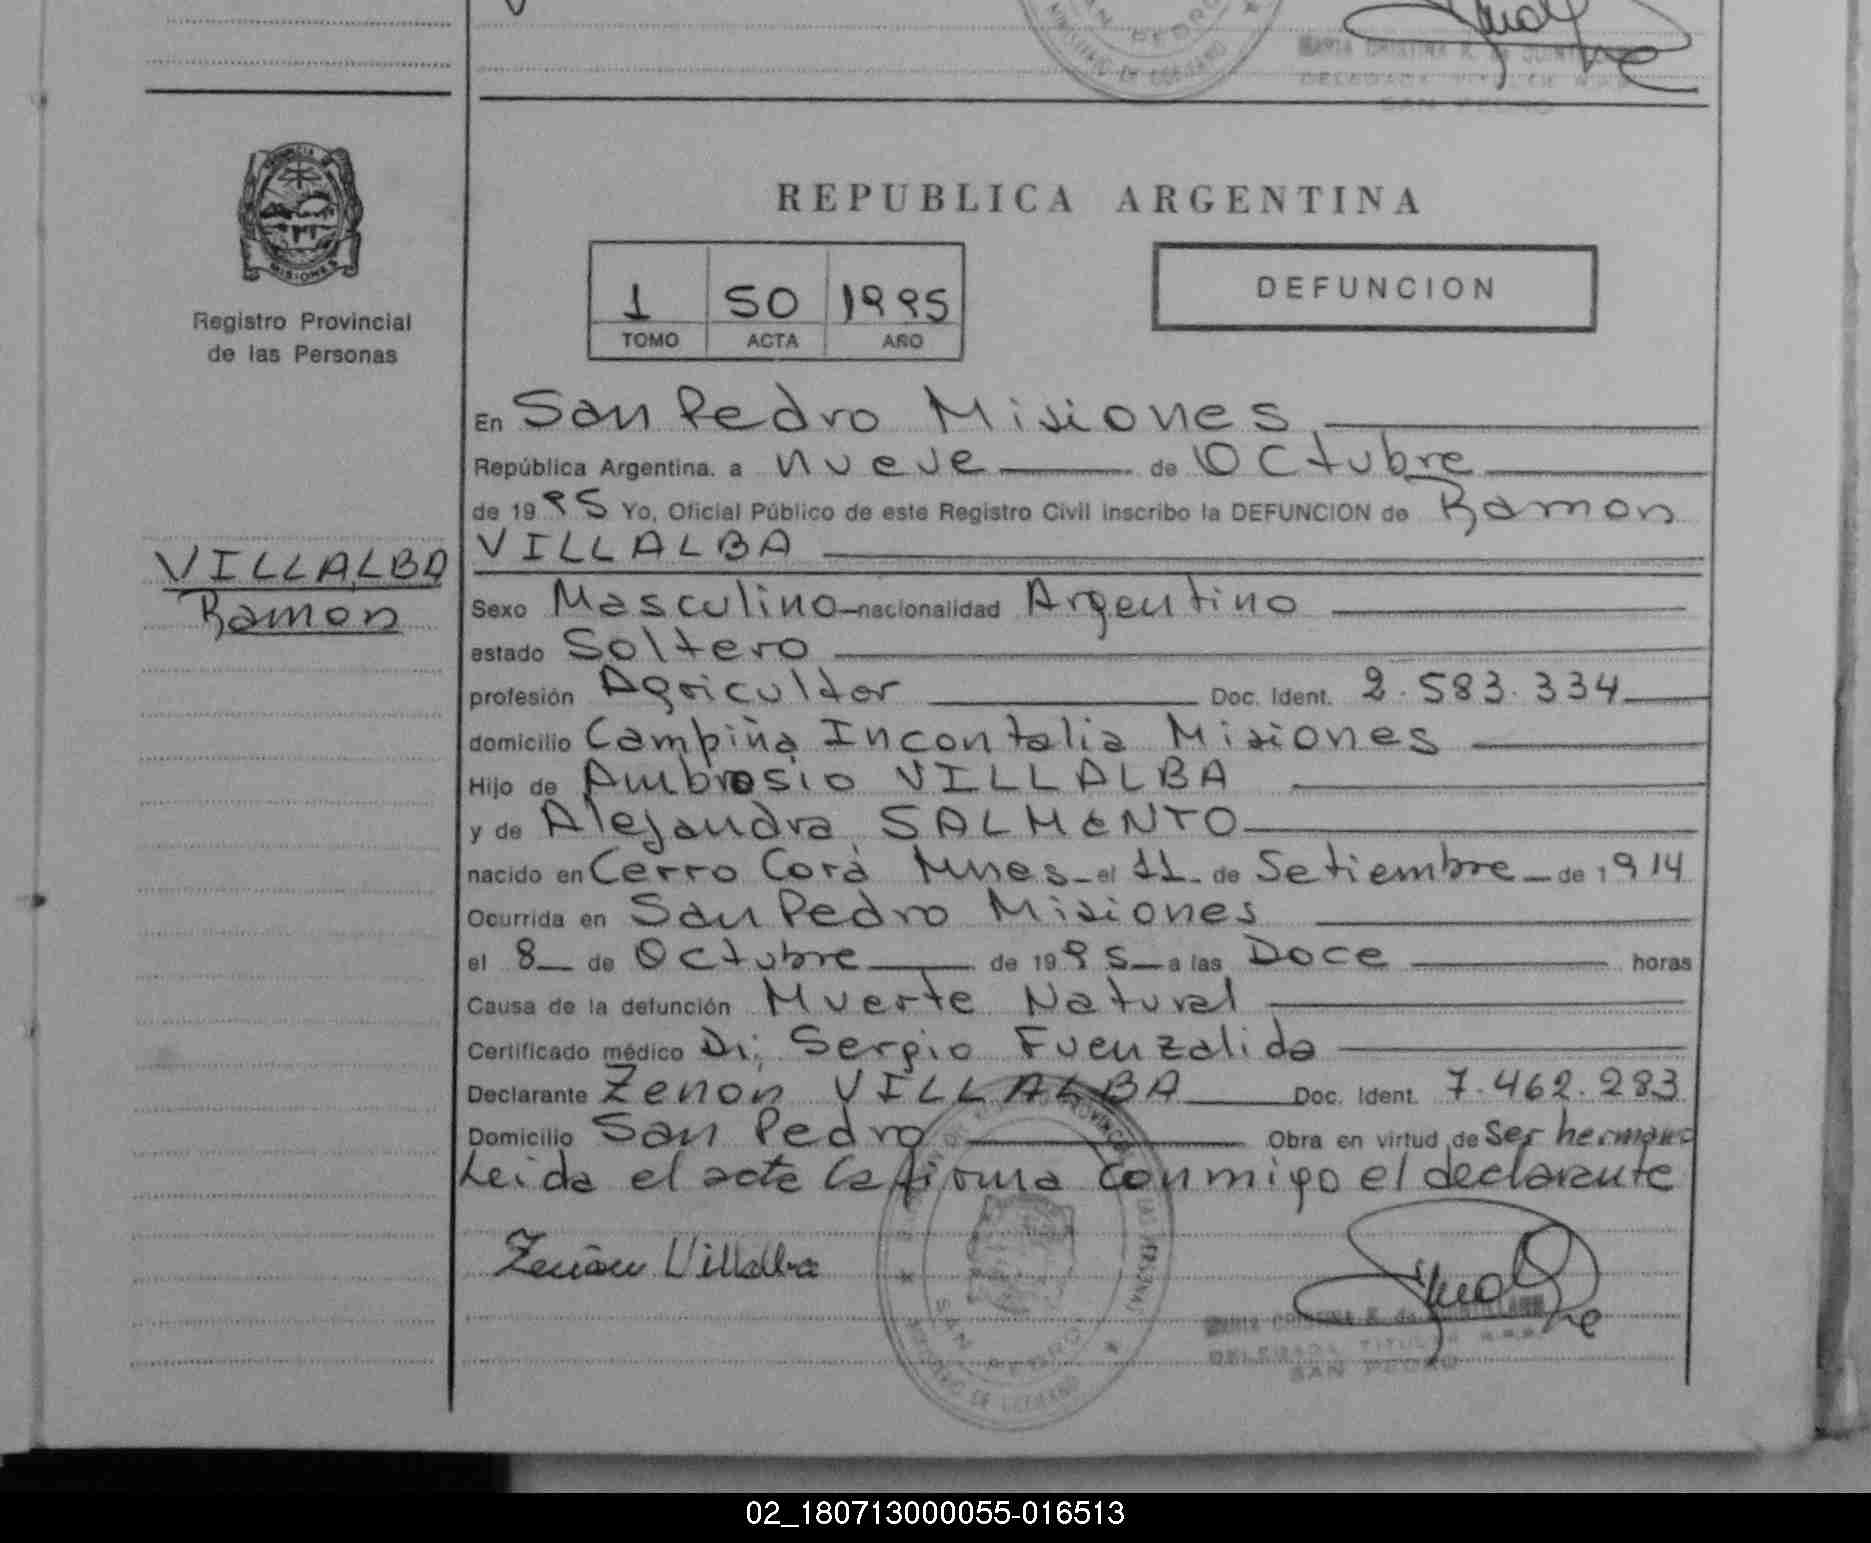 SAN PEDRO
MINISTERIO DE GOBIERNO
MARIA CRISTINA R. de
DELEGADA TITULAR R.P.P.
SAN PEDRO
PROVINCIA DE
MISIONES
Registro Provincial
de las Personas
REPUBLICA ARGENTINA
1 50 1995
TOMO ACTA AÑO
DEFUNCION
En San Pedro Misiones
República Argentina. a nueve de Octubre
de 1995 Yo, Oficial Público de este Registro Civil inscribo la DEFUNCION de Ramon
VILLALBA
VILLALBA
Ramon
Sexo Masculino nacionalidad Argentino
estado Soltero
profesión Agricultor Doc. Ident. 2.583.334
domicilio Campiña Incontalia Misiones
Hijo de Ambrosio VILLALBA
y de Alejandra SALMENTO
nacido en Cerro Corá Mnes el 11 de Setiembre de 1914
Ocurrida en San Pedro Misiones
el 8 de Octubre de 1995 a las Doce horas
Causa de la defunción Muerte Natural
Certificado médico Dr; Sergio Fuenzalida
Declarante Zenon VILLALBA Doc. Ident. 7.462.283
Domicilio San Pedro Obra en virtud de Ser hermano
Leida el acta la firma conmigo el declarante
Zenón Villalba
SAN PEDRO
MINISTERIO DE GOBIERNO
MARIA CRISTINA R. de
DELEGADA TITULAR R.P.P.
SAN PEDRO
02_180713000055-016513